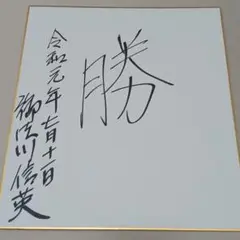 勝
令和元年七月十一日
御法川信英